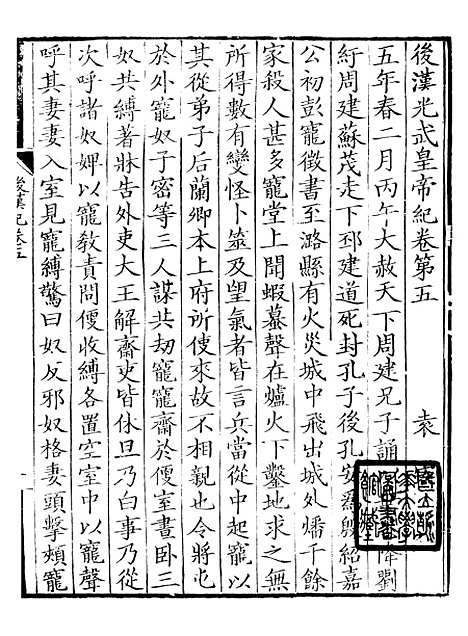 後漢光武皇帝紀卷第五 袁
五年春二月丙午大赦天下周建兄子誦降劉
紆周建蘇茂走下邳建道死封孔子後孔安爲殷紹嘉
公初彭寵徵書至潞縣有火災城中飛出城外燔千餘
家殺人甚多寵堂上聞蝦蟇聲在爐火下鑿地求之無
所得數有變怪卜筮及望氣者皆言兵當從中起寵以
其從弟子后蘭卿本上府所使來故不相親也令將屯
於外寵奴子密等三人謀共劫寵寵齋於便室晝卧三
奴共縛著牀告外吏大王解齋吏皆休旦乃白事乃從
次呼諸奴婢以寵教責問便收縛各置空室中以寵聲
呼其妻妻入室見寵縛驚曰奴反邪奴格妻頭擊頰寵
後漢紀卷五